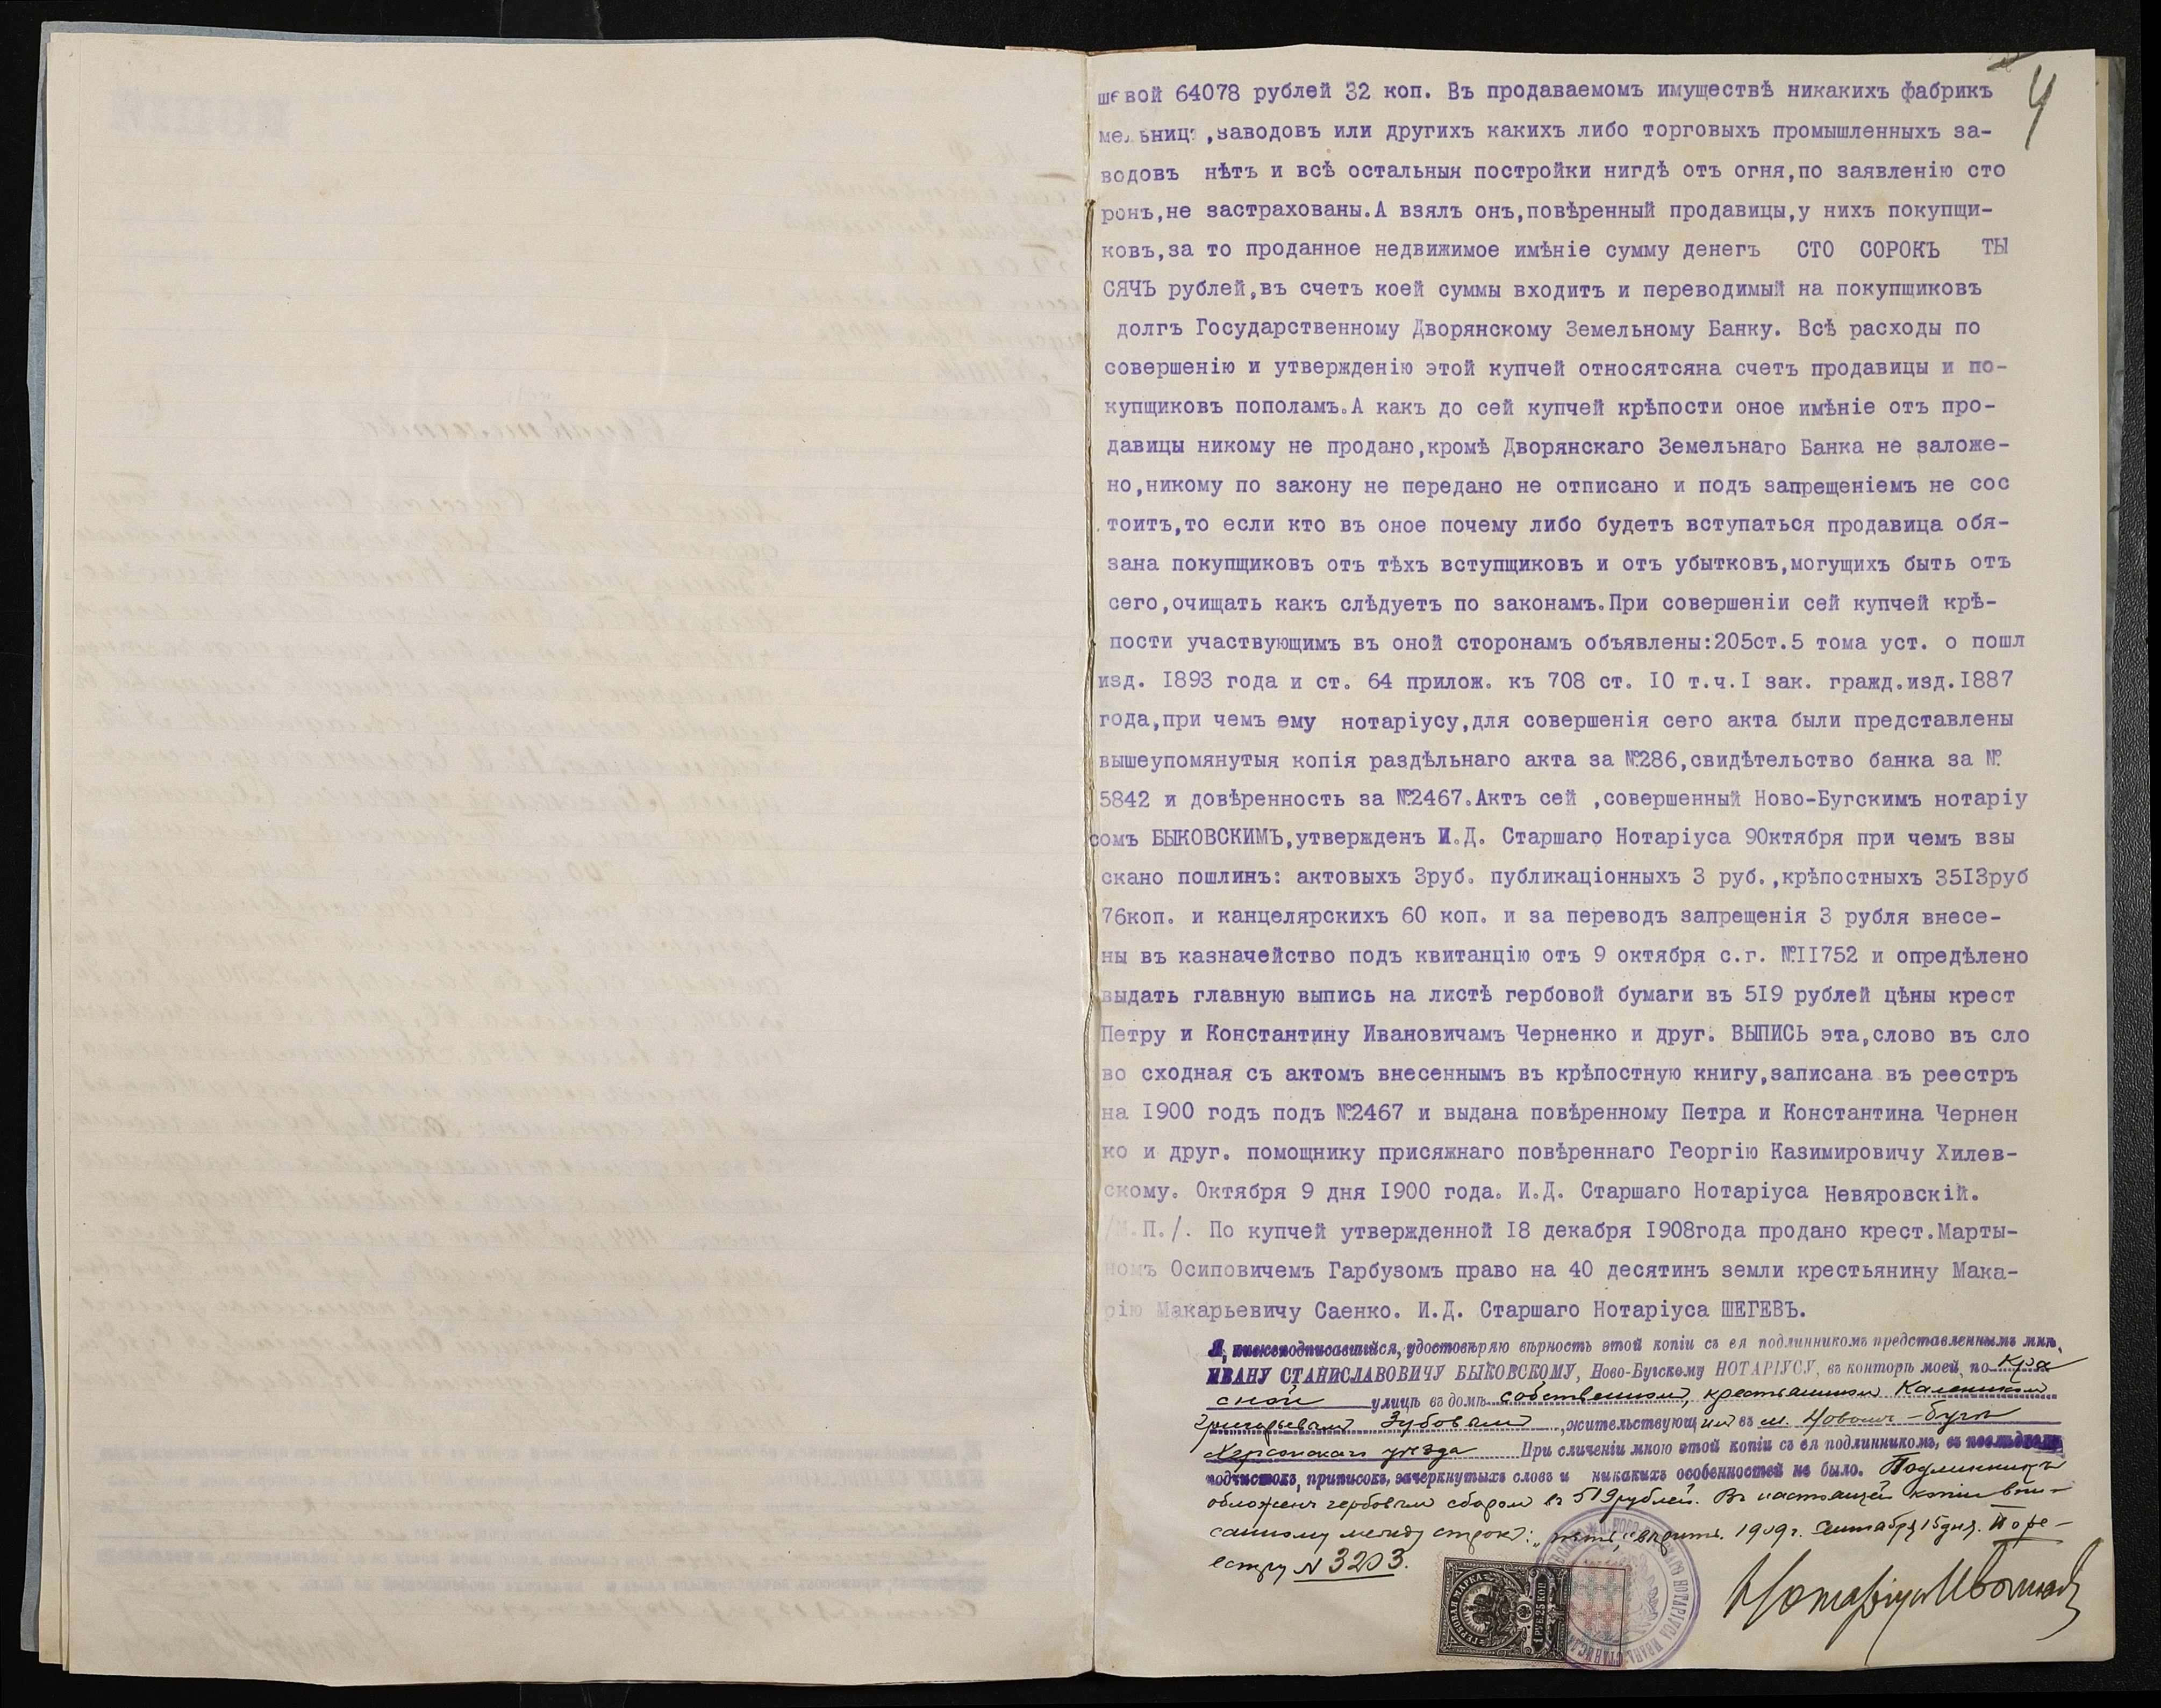 4
шевой 64078 рублей 32 коп. Въ продаваемомъ имуществѣ никакихъ фабрикъ
мельницъ,заводовъ или другихъ какихъ либо торговыхъ промышленныхъ за-
водовъ нѣтъ и всѣ остальныя постройки нигдѣ отъ огня,по заявленію сто
ронъ,не застрахованы.А взялъ онъ,повѣренный продавицы,у нихъ покупщи-
ковъ,за то проданное недвижимое имѣніе сумму денегъ СТО СОРОКЪ ТЫ
СЯЧЪ рублей,въ счетъ коей суммы входитъ и переводимый на покупщиковъ
долгъ Государственному Дворянскому Земельному Банку. Всѣ расходы по
совершенію и утвержденію этой купчей относятсяна счетъ продавицы и по-
купщиковъ пополамъ.А какъ до сей купчей крѣпости оное имѣніе отъ про-
давицы никому не продано,кромѣ Дворянскаго Земельнаго Банка не заложе-
но,никому по закону не передано не отписано и подъ запрещеніемъ не сос
тоитъ,то если кто въ оное почему либо будетъ вступаться продавица обя-
зана покупщиковъ отъ тѣхъ вступщиковъ и отъ убытковъ,могущихъ быть отъ
сего,очищать какъ слѣдуетъ по законамъ.При совершеніи сей купчей крѣ-
пости участвующимъ въ оной сторонамъ объявлены:205ст.5 тома уст. о пошл
изд. I893 года и ст. 64 прилож. къ 708 ст. I0 т.ч.I зак. гражд.изд.I887
года,при чемъ ему нотаріусу,для совершенія сего акта были представлены
вышеупомянутыя копія раздѣльнаго акта за №286,свидѣтельство банка за №
5842 и довѣренность за №2467.Актъ сей ,совершенный Ново-Бугскимъ нотаріу
сомъ БЫКОВСКИМЪ,утвержденъ И.Д. Старшаго Нотаріуса 9Октября при чемъ взы
скано пошлинъ: актовыхъ 3руб. публикаціонныхъ 3 руб.,крѣпостныхъ 35I3руб
76коп. и канцелярскихъ 60 коп. и за переводъ запрещенія 3 рубля внесе-
ны въ казначейство подъ квитанцію отъ 9 октября с.г. №II752 и опредѣлено
выдать главную выпись на листѣ гербовой бумаги въ 5I9 рублей цѣны крест
Петру и Константину Ивановичамъ Черненко и друг. ВЫПИСЬ эта,слово въ сло
во сходная съ актомъ внесеннымъ въ крѣпостную книгу,записана въ реестръ
на I900 годъ подъ №2467 и выдана повѣренному Петра и Константина Чернен
ко и друг. помощнику присяжнаго повѣреннаго Георгію Казимировичу Хилев-
скому. Октября 9 дня I900 года. И.Д. Старшаго Нотаріуса Невяровскій.
/М.П./. По купчей утвержденной I8 декабря I908года продано крест.Марты-
номъ Осиповичемъ Гарбузомъ право на 40 десятинъ земли крестьянину Мака-
рію Макарьевичу Саенко. И.Д. Старшаго Нотаріуса ШЕГЕВЪ.
Я, нижеподписавшійся, удостовѣряю вѣрность этой копіи съ ея подлинникомъ представленнымъ мнѣ,
ИВАНУ СТАНИСЛАВОВИЧУ БЫКОВСКОМУ, Ново-Бугскому НОТАРІУСУ, въ конторѣ моей, по Кра
сной улицѣ въ домѣ собственномъ, крестьяниномъ Калеником
Григорьевымъ Зубовымъ, жительствующимъ въ м. Новомъ-Бугѣ
Херсонскаго уѣзда При сличеніи мною этой копіи съ ея подлинникомъ, въ послѣднемъ
подчистокъ, приписокъ, зачеркнутыхъ словъ и никакихъ особенностей не было. Подлинникъ
обложенъ гербовымъ сборомъ въ 519 рублей. Въ настоящей копіи впи-
санному между строкъ: вѣрить. 1909 г. Сентября 15 дня. По ре-
естру № 3203.
Нотаріусъ
ГЕРБОВАЯ МАРКА
1 РУБ. 25 КОП.